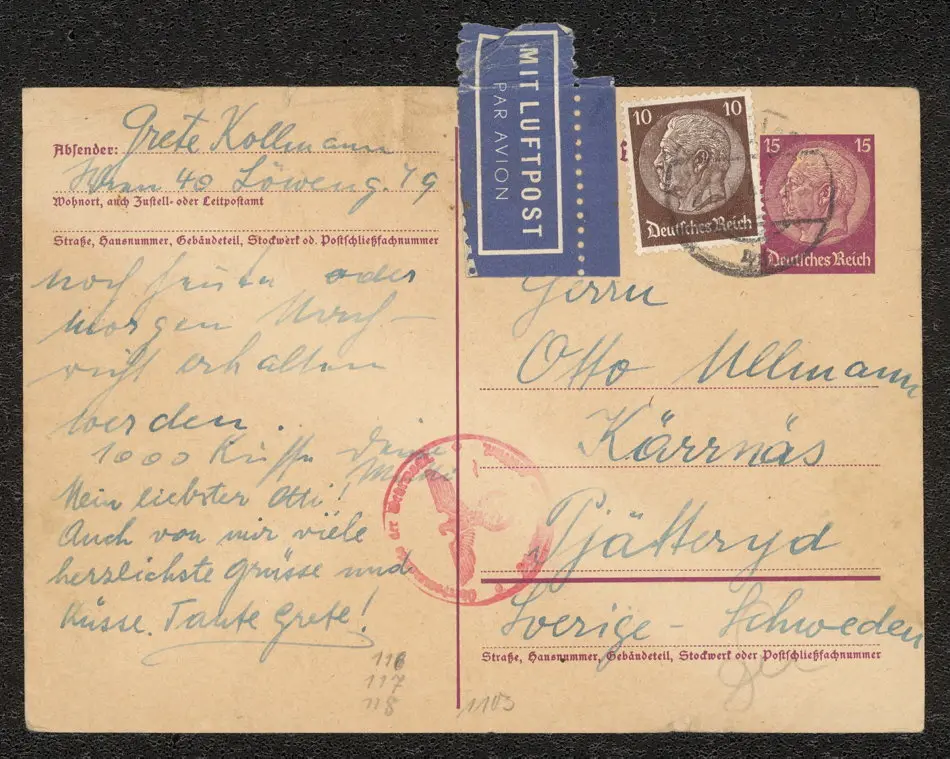 Absender: Grete Kollmann
Wien 40 Löweng. 49
Wohnort, auch Zustell- oder Leitpostamt
Straße, Hausnummer, Gebäudeteil, Stockwerk od. Postschließfachnummer
noch heute oder
morgen Nach-
richt erhalten
werden.
1000 Küsse Deine
Mein liebster Otti!
Auch von mir viele
herzlichste Grüsse und
Küsse. Tante Grete!
116
117
118
1103
MIT LUFTPOST
PAR AVION
10 10
Deutsches Reich
15 15
Deutsches Reich
Herrn
Otto Ullmann
Kärrnäs
Pjätteryd
Sverige - Schweden
Straße, Hausnummer, Gebäudeteil, Stockwerk oder Postschließfachnummer